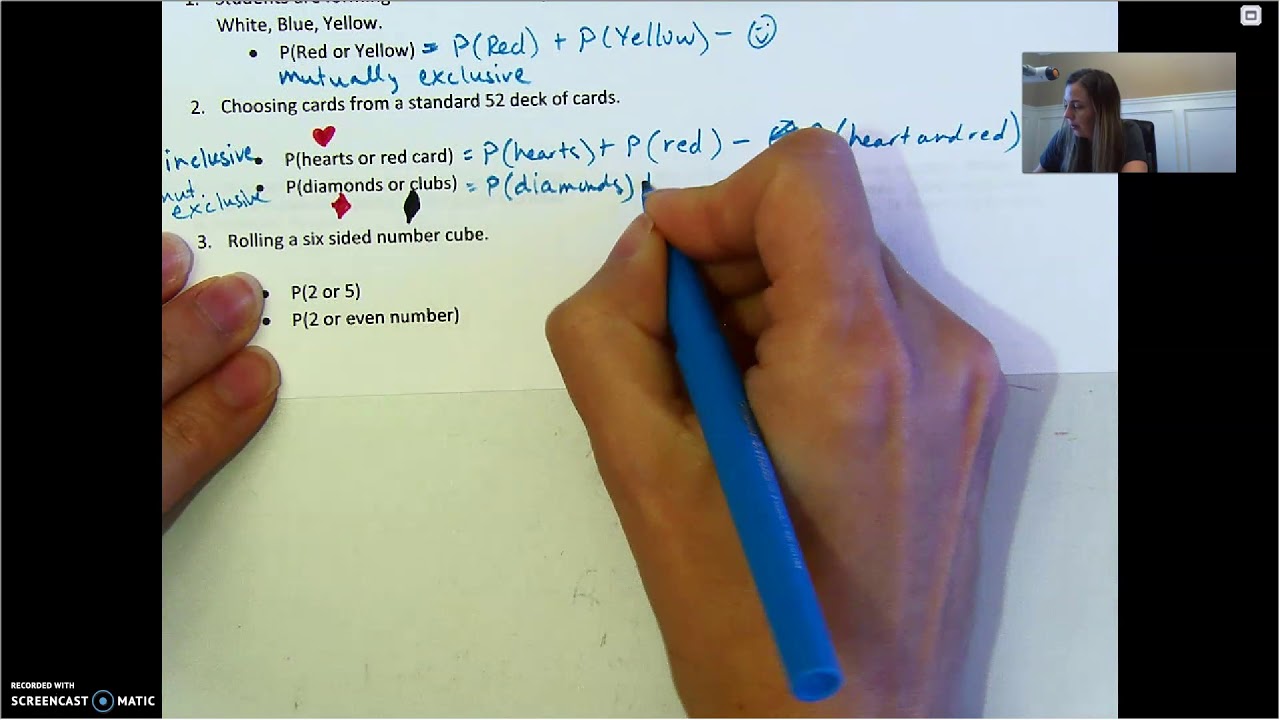 1. Students are forming
White, Blue, Yellow.
• P(Red or Yellow) = P(Red) + P(Yellow) -
mutually exclusive
2. Choosing cards from a standard 52 deck of cards.
inclusive • P(hearts or red card) = P(hearts) + P(red) - (heart and red)
mut. exclusive • P(diamonds or clubs) = P(diamonds)
3. Rolling a six sided number cube.
• P(2 or 5)
• P(2 or even number)
RECORDED WITH
SCREENCAST MATIC